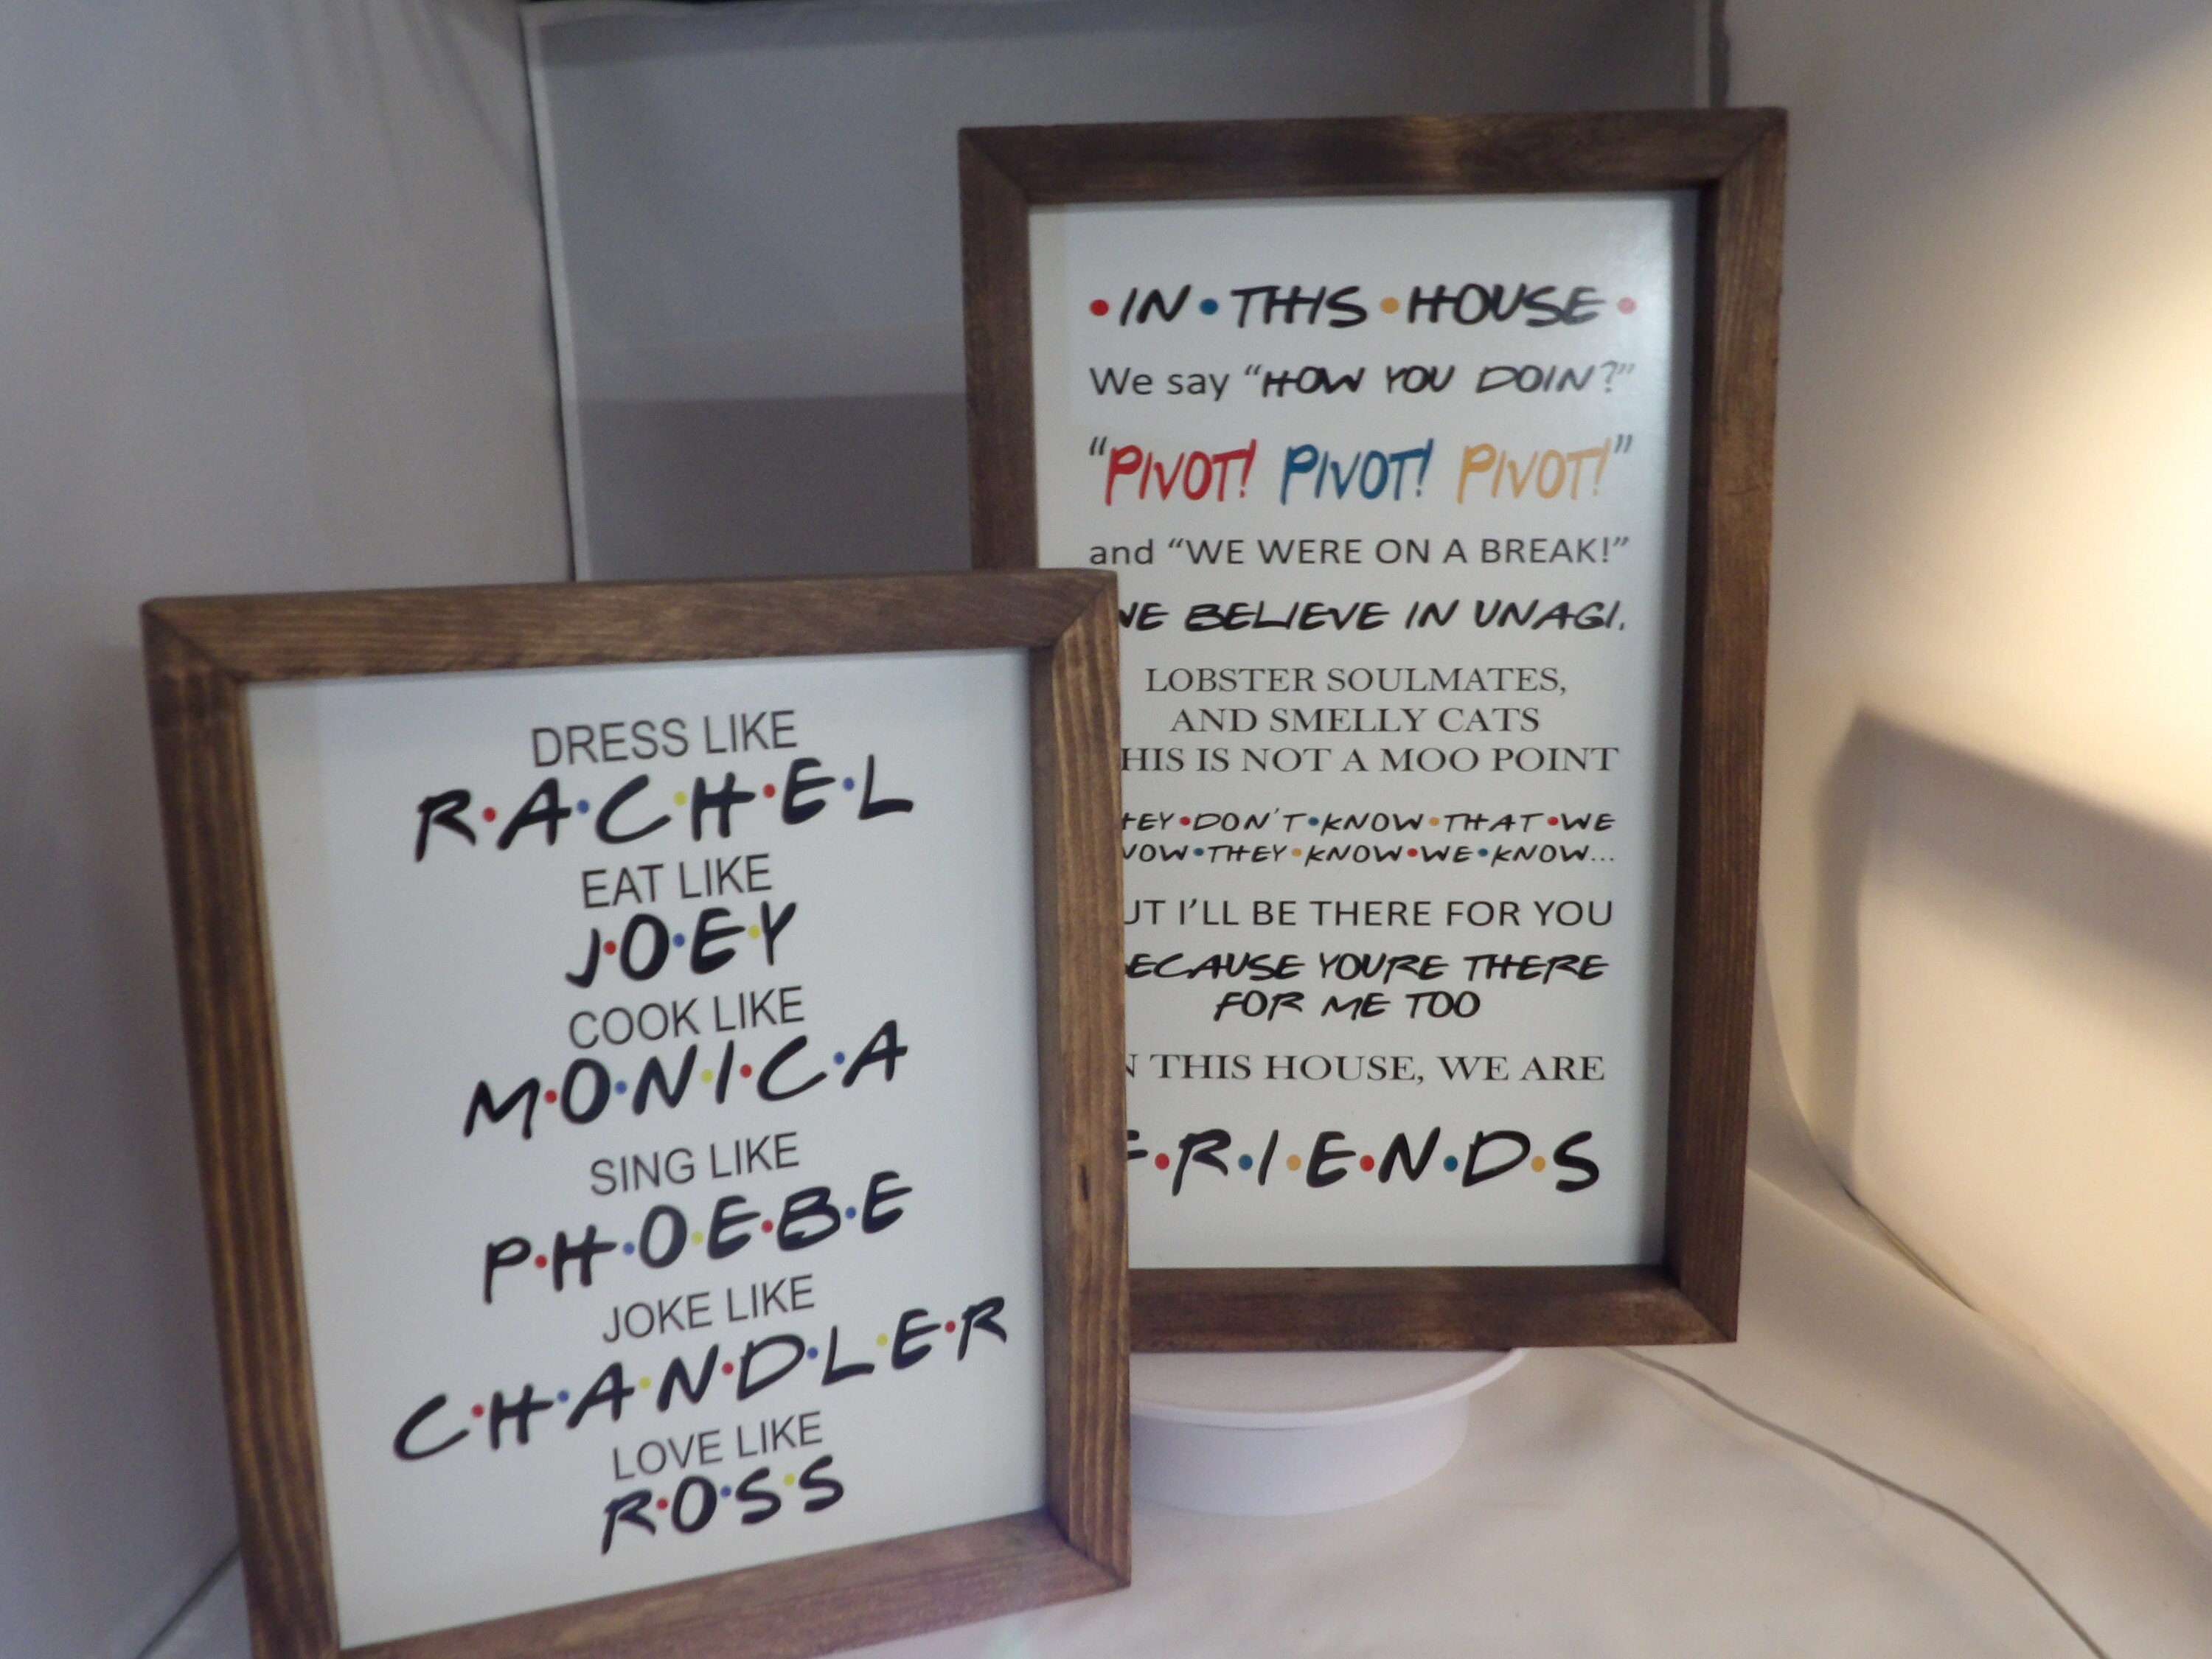 DRESS LIKE
R•A•C•H•E•L
EAT LIKE
J•O•E•Y
COOK LIKE
M•O•N•I•C•A
SING LIKE
P•H•O•E•B•E
JOKE LIKE
C•H•A•N•D•L•E•R
LOVE LIKE
R•O•S•S
•IN•THIS•HOUSE•
We say “HOW YOU DOIN?”
“PIVOT! PIVOT! PIVOT!”
and “WE WERE ON A BREAK!”
WE BELIEVE IN UNAGI.
LOBSTER SOULMATES,
AND SMELLY CATS
HIS IS NOT A MOO POINT
EY•DON'T•KNOW•THAT•WE
NOW•THEY•KNOW•WE•KNOW...
UT I’LL BE THERE FOR YOU
ECAUSE YOURE THERE
FOR ME TOO
N THIS HOUSE, WE ARE
F•R•I•E•N•D•S